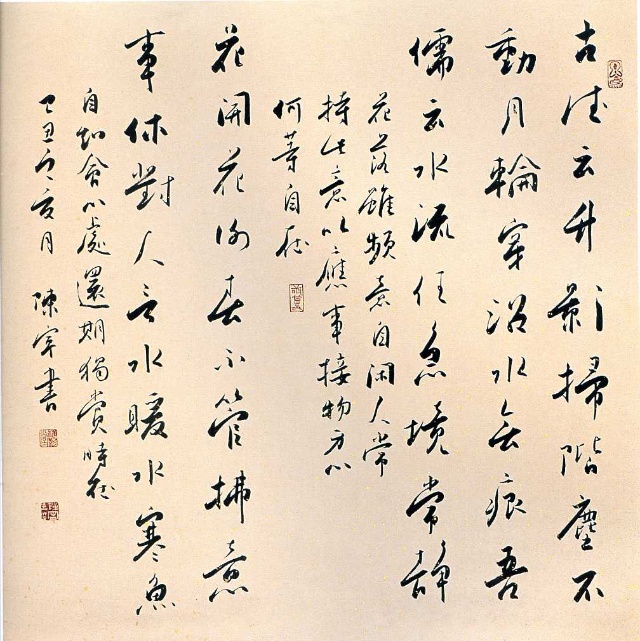 古德云竹影掃階塵不
動月輪穿沼水無痕吾
儒云水流任急境常靜
花落雖頻意自闲人常
持此意以應事接物身心
何等自在
花開花謝春不管拂意
事休對人言水暖水寒魚
自知會心處還期獨賞時在
己丑之亥月 陳書